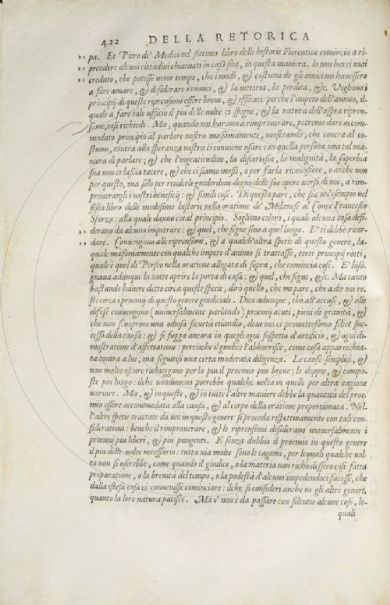 422 DELLA RETORICA
pa. Et Piero de' Medici nel settimo libro delle historie Fiorentine comincia a ri-
prendere alcuni cittadini chiamati in casa sua, in questa maniera. io non harei mai
creduto, che potesse venir tempo, che i modi, & costumi de gli amici mi hauessero
a fare amare, & desiderare i nimici, & la uittoria, la perdita, &c. Vogliono i
principij di queste riprensioni essere breui, & efficaci: perche l'impeto dell'animo, il-
quale a fare tale ufficio il piu delle uolte ci spigne, & la natura dell'aspra ripren-
sione, cosi richiede. Ma, quando noi haremo a rimprouerare, potremo dare accom-
modato principio al parlare nostro massimamente, mostrando, che contra al co-
stume, contra alla speranza nostra ci conuiene usare con quella persona una tal ma-
niera di parlare; & che l'ingratitudine, la discortesia, la malignità, la superbia
sua non ci lascia tacere, & che ci siamo mossi, o per farla riconoscere, o anche non
per questo, ma solo per renderle guiderdone degno delle sue opere uerso di noi, a rim-
prouerargli i nostri beneficij; & simili cose. Di questo pare, che sia un' esempio nel
sesto libro delle medesime historie nella oratione de' Milanesi al Conte Francesco
Sforza: alla quale danno cotal principio. Sogliono coloro, i quali alcuna cosa desi-
derano da alcuno impetrare: & quel, che segue sino a quel luogo. E' ti debbe ricor-
dare. Conuengono alle riprensioni, & a quade l'altra spetie di questo genere, la-
quale massimamente con qualche impeto d'animo si trattasse, certi principij rotti,
quale è quel di Perseo nella oratione allegata di sopra, che comincia così. E' biso-
gnaua adunque la notte aprire la porta di casa: & quel, che segue, &c. Ma tanto
bastando hauere detto circa queste spetie, dirò quello, che mi pare, che a dir mi re-
sti circa i proemij di questo genere giudiciali. Dico adunque, che all'accuse, & alle
difese conuengono (uniuersalmente parlando) proemij acuti, pieni di grauità, &
che non scuoprino una odiosa sicurtà etiandio, doue noi ci promettessimo felice suc-
cesso della causa: & si fugga ancora in questi ogni sospetto d'artificio, & ogni di-
mostratione d'affettatione: perche il giudice l'abhorrisce, come cosa apparecchia-
ta contra a lui, ma seguasi una certa moderata diligenza. Le cause semplici, &
non molto oscure richieggono per lo piu il proemio piu breue; le doppie, & compo-
ste piu lungo: ilche nondimeno potrebbe qualche uolta in quelle per altra cagione
uariare. Ma, & in queste, & in tutte l'altre maniere debbe la quantità del proe-
mio essere accommodata alla causa, & al corpo della oratione proportionata. Nel-
l'altre spetie trattate da noi in questo genere si proceda rispettiuamente con pari con-
siderationi: benche il rimprouerare, & le riprensioni desiderano uniuersalmente i
proemij piu liberi, & piu pungenti. E senza dubbio il proemio in questo genere
il piu delle uolte necessario: tuttauia molte sono le cagioni, per lequali qualche uol-
ta non si userebbe, come quando il giudice, o la materia non richiedessero così fatta
preparatione, o la breuità del tempo, o la podestà d'alcuno impedendoci facesse, che
dalla istessa cosa ci conuenisse cominciare: ilche si consideri anche ne gli altri generi,
quanto la loro natura patisce. Ma e' non è da passare con silentio alcune cose, le-
quali